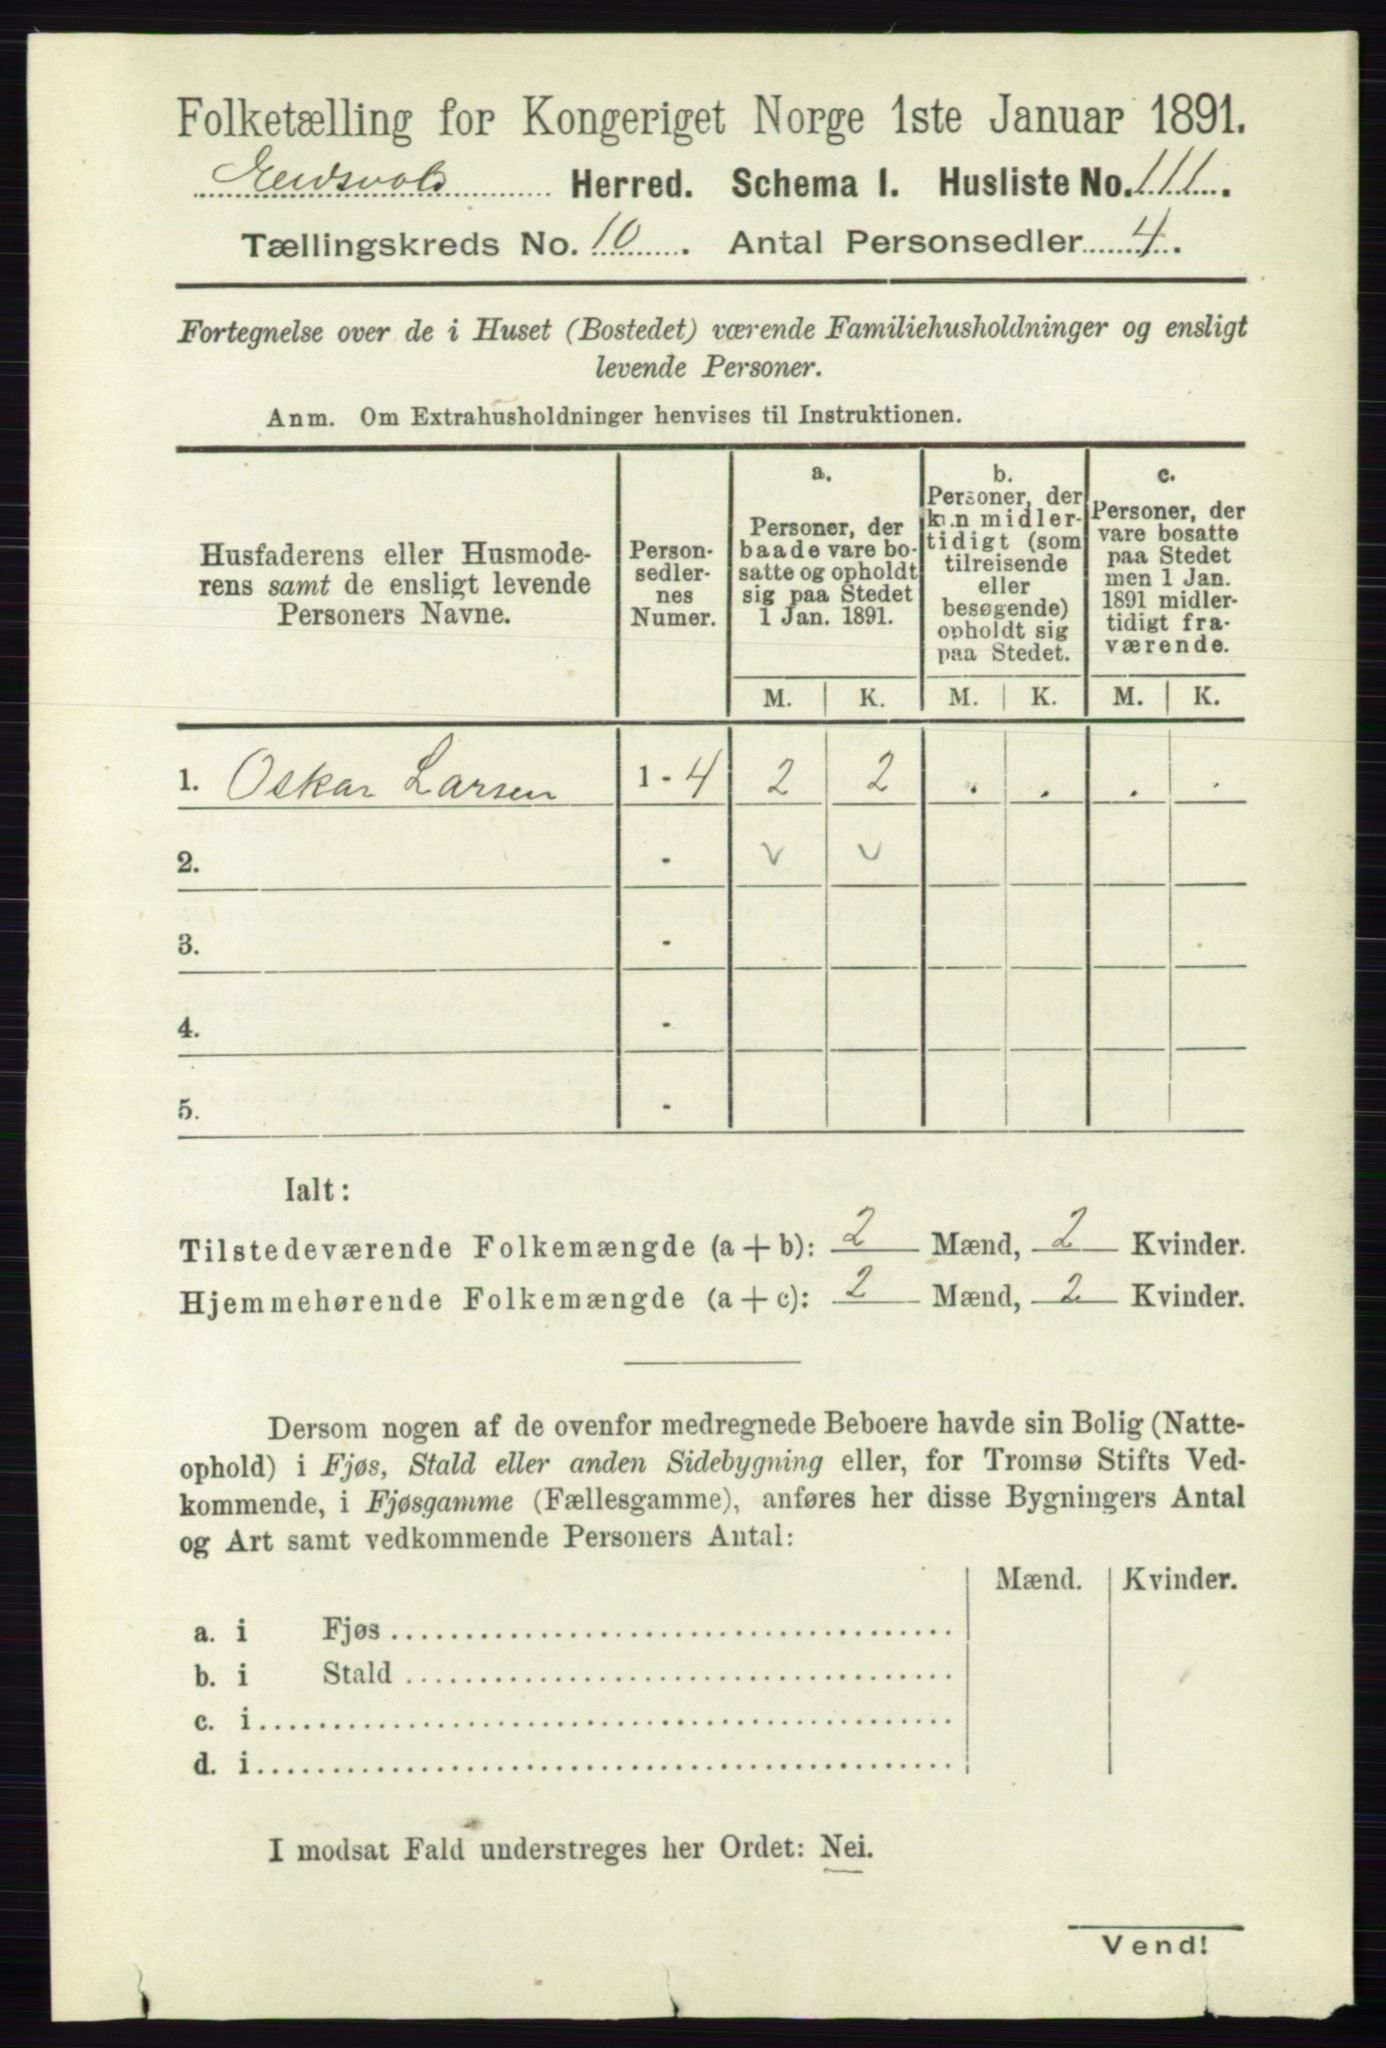 Folketælling for Kongeriget Norge 1ste Januar 1891.
Eidsvold Herred. Schema I. Husliste No. 111.
Tællingskreds No. 10. Antal Personsedler 4.
Fortegnelse over de i Huset (Bostedet) værende Familiehusholdninger og ensligt
levende Personer.
Anm. Om Extrahusholdninger henvises til Instruktionen.
Husfaderens eller Husmode-
rens samt de ensligt levende
Personers Navne.
Person-
sedler-
nes
Numer.
a.
Personer, der
baade vare bo-
satte og opholdt
sig paa Stedet
1 Jan. 1891.
b.
Personer, der
kun midler-
tidigt (som
tilreisende
eller
besøgende)
opholdt sig
paa Stedet.
c.
Personer, der
vare bosatte
paa Stedet
men 1 Jan.
1891 midler-
tidigt fra-
værende.
M. K. M. K. M. K.
1. Oskar Larsen 1 - 4 2 2 . . . .
2. - v v
3. -
4. -
5. -
Ialt:
Tilstedeværende Folkemængde (a + b): 2 Mænd, 2 Kvinder.
Hjemmehørende Folkemængde (a + c): 2 Mænd, 2 Kvinder.
Dersom nogen af de ovenfor medregnede Beboere havde sin Bolig (Natte-
ophold) i Fjøs, Stald eller anden Sidebygning eller, for Tromsø Stifts Ved-
kommende, i Fjøsgamme (Fællesgamme), anføres her disse Bygningers Antal
og Art samt vedkommende Personers Antal:
Mænd. Kvinder.
a. i Fjøs
b. i Stald
c. i
d. i
I modsat Fald understreges her Ordet: Nei.
Vend!